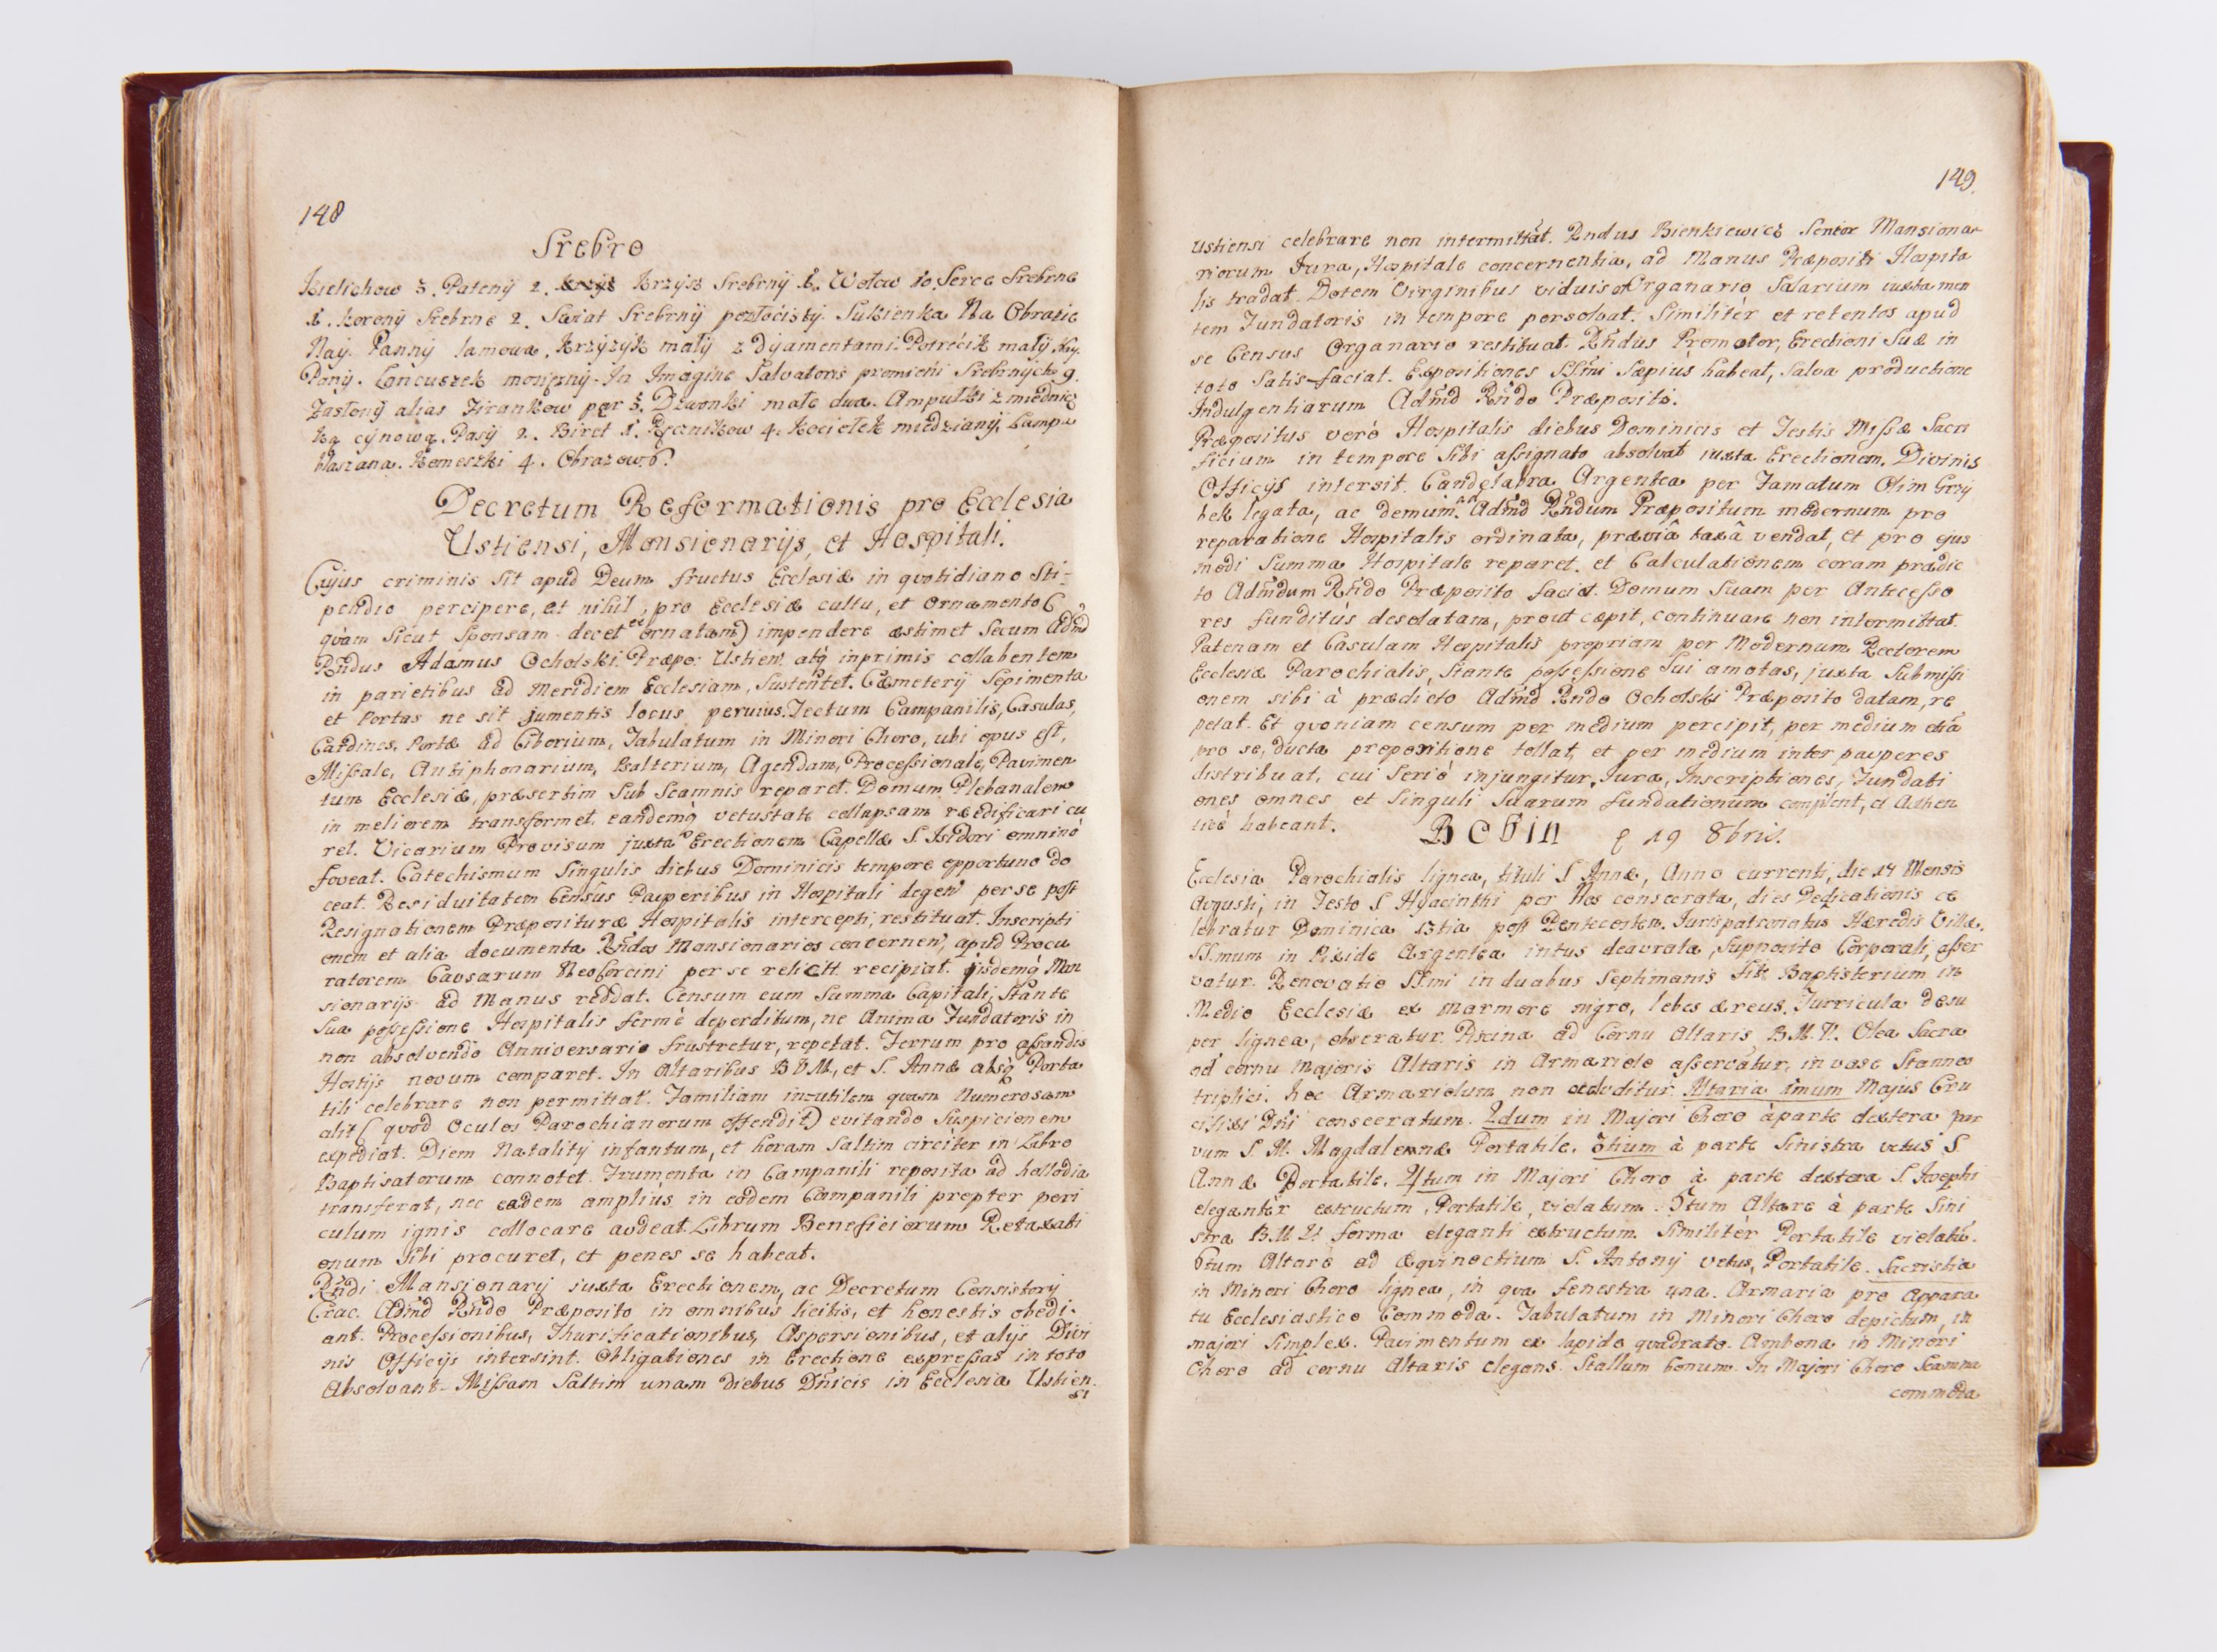 148
Srebro
Kielichow 3. Pateny 2. Krzysz Srebrny 1. Wotew 10. Serce Srebrne
1. korony Srebrne 2. Swiat Srebrny pozłocisty. Sukienka Na Obrazie
Nay. Panny lamowa. Krzyzyk mały z Dyamentami. Potrécik mały Nay.
Pany. Łańcuszek mosięzny. In Imagine Salvatoris promieni Srebrnych 9.
Zasłony alias Firankow par 3. Dzwonki małe dwa. Ampułki z miednicz
ką cynową. Pasy 2. Biret 1. Ręcznikow 4. Kociełek miedziany, Lampa
blaszana. Komeszki 4. Obrazow 6.
Decretum Reformationis pro Ecclesia
Ustiensi, Mansionarijs, et Hospitali.
Cujus criminis sit apud Deum fructus Ecclesiæ in quotidiano Sti-
pendio percipere, et nihil, pro Ecclesiæ cultu, et ornamento (
quam Sicut Sponsam decet ornatam) impendere æstimet Secum Admd
Rndus Adamus Ocholski Præpo: Ustien. atq inprimis collabentem
in parietibus ad Meridiem Ecclesiam, Sustentet. Cæmeterij Sepimenta
et Portas ne sit jumentis locus pervius. Tectum Campanilis, Casulas,
Cardines, Portæ ad Ciborium, Tabulatum in Minori Choro, ubi opus est,
Missale, Antiphonarium, Psalterium, Agendam, Processionale, Pavimen
tum Ecclesiæ, præsertim Sub Scamnis reparet. Domum Plebanalem
in meliorem transformet, eandemq vetustate collapsam reædificari cu
ret. Vicarium Provisum juxta Erectionem Capellæ S. Isidori omninò
foveat. Catechismum Singulis diebus Dominicis tempore opportuno do
ceat. Residuitatem Census Pauperibus in Hospitali degen. per se post
Resignationem Præposituræ Hospitalis intercepti, restituat. Inscripti
onem et alia documenta Rndos Mansionarios concernen, apud Procu
ratorem Causarum Neoforceni per se relictt. recipiat. ijsdemq Man
sionarijs ad Manus reddat. Censum cum Summa Capitali, Stante
Sua possessione Hospitalis fermè deperditum, ne Anima Fundatoris in
non absolvendo Anniversario frustretur, repetat. Ferrum pro assandis
Hostijs novum comparet. In Altaribus B V M, et S. Annæ absq Porta
tili celebrare non permittat. Familiam inutilem quam Numerosam
alit (quod Oculos Parochianorum offendit) evitando Suspicionem
expediat. Diem Natalitij infantum, et horam Saltim circiter in Libro
Baptisatorum connotet. Frumenta in Campanili reposita ad hollodia
transferat, nec eadem amplius in eodem Campanili propter peri
culum ignis collocare audeat. Librum Beneficiorum Retaxati
onum Sibi procuret, et penes se habeat.
Rndi Mansionarij juxta Erectionem, ac Decretum Consistorij
Crac. Admd Rndo Præposito in omnibus licitis, et honestis obedi-
ant. Processionibus, Thurificationibus, Aspersionibus, et alijs Divi
nis Officijs intersint. Obligationes in Erectione expressas in toto
Absolvant. Missam Saltim unam diebus Dnicis in Ecclesia Ustien.
si
149.
Ustiensi celebrare non intermittat. Rndus Bienkiewicz Senior Mansiona-
riorum Jura, Hospitale concernentia, ad Manus Præpositi Hospita
lis tradat. Dotem Virginibus viduis et Organario Salarium iuxta men
tem Fundatoris in tempore persolvat. Similitèr et retentos apud
se Census Organario restituat. Rndus Promotor, Erectioni Suæ in
toto Satis-faciat. Expositiones SSmi Sæpiùs habeat, Salva productione
Indulgentiarum Admd Rndo Præposito.
Præpositus verò Hospitalis diebus Dominicis et Festis Missæ Sacri
ficium in tempore Sibi assignato absolvat iuxta Erectionem. Divinis
Officijs intersit. Candelabra Argentea per Famatum Olim Grzy
bek legata, ac demùm Admd Rndum Præpositum modernum pro
reparatione Hospitalis ordinata, præviâ taxâ vendat, et pro ejus
modi Summa Hospitale reparet, et Calculationem coram prædic
to Admdum Rndo Præposito faciat. Domum Suam per Antecesso
res funditùs desolatam, prout cæpit, continuare non intermittat.
Patenam et Casulam Hospitalis propriam per Modernum Rectorem
Ecclesiæ Parochialis, Stante possessione Sui amotas, juxta Submissi
onem sibi à prædicto Admd Rndo Ocholski Præposito datam, re
petat. Et quoniam censum per medium percipit, per medium etiã
pro se, ducta propositione tollat, et per medium inter pauperes
distribuat, cui Seriò injungitur. Jura, Inscriptiones, Fundati
ones omnes et Singuli Suarum fundationum compilent, et Authen
ticè habeant. Bobin 19 8bris.
Ecclesia Parochialis lignea, tituli S Annæ, Anno currenti, die 17 Mensis
Augusti, in Festo S Hyacinthi per Nos consecrata, dies Dedicationis ce
lebratur Dominica 13tia post Pentecostem. Jurispatronatus Hæredis Villæ.
SSmum in Pixide Argentea intus deaurata, Supposito Corporali, asser
vatur. Renovatio SSmi in duabus Septimanis fit. Baptisterium in
Medio Ecclesiæ ex marmore nigro, lebes æreus. Turricula desu
per lignea, obseratur. Piscina ad Cornu Altaris B.M.V. Olea Sacra
ad cornu Majoris Altaris in Armariolo asservatur, in vase Stanneo
triplici. hoc Armariolum non occluditur. Altaria imum Majus Cru
cifixi Dni consecratum. 2dum in Majori Choro àparte dextera par
vum S. M. Magdalennæ Portatile. 3tium à parte Sinistra vetus S
Annæ Portatile. 4tum in Majori Choro à parte dextera S. Josephi
eleganter extructum, Portatile, violatum. 5tum Altare à parte Sini
stra B.M.V. forma eleganti extructum. Similitèr Portatile violatũ.
6tum Altare ad æquinoctium S. Antonij vetus, Portatile. Sacristia
in Minori Choro lignea, in qua fenestra una. Armaria pro Appara
tu Ecclesiastico Commoda. Tabulatum in Minori Choro depictum, in
majori Simplex. Pavimentum ex lapide quadrato. Ambona in Minori
Choro ad cornu Altaris elegans. Stallum bonum. In Majori Choro Scamna
commoda